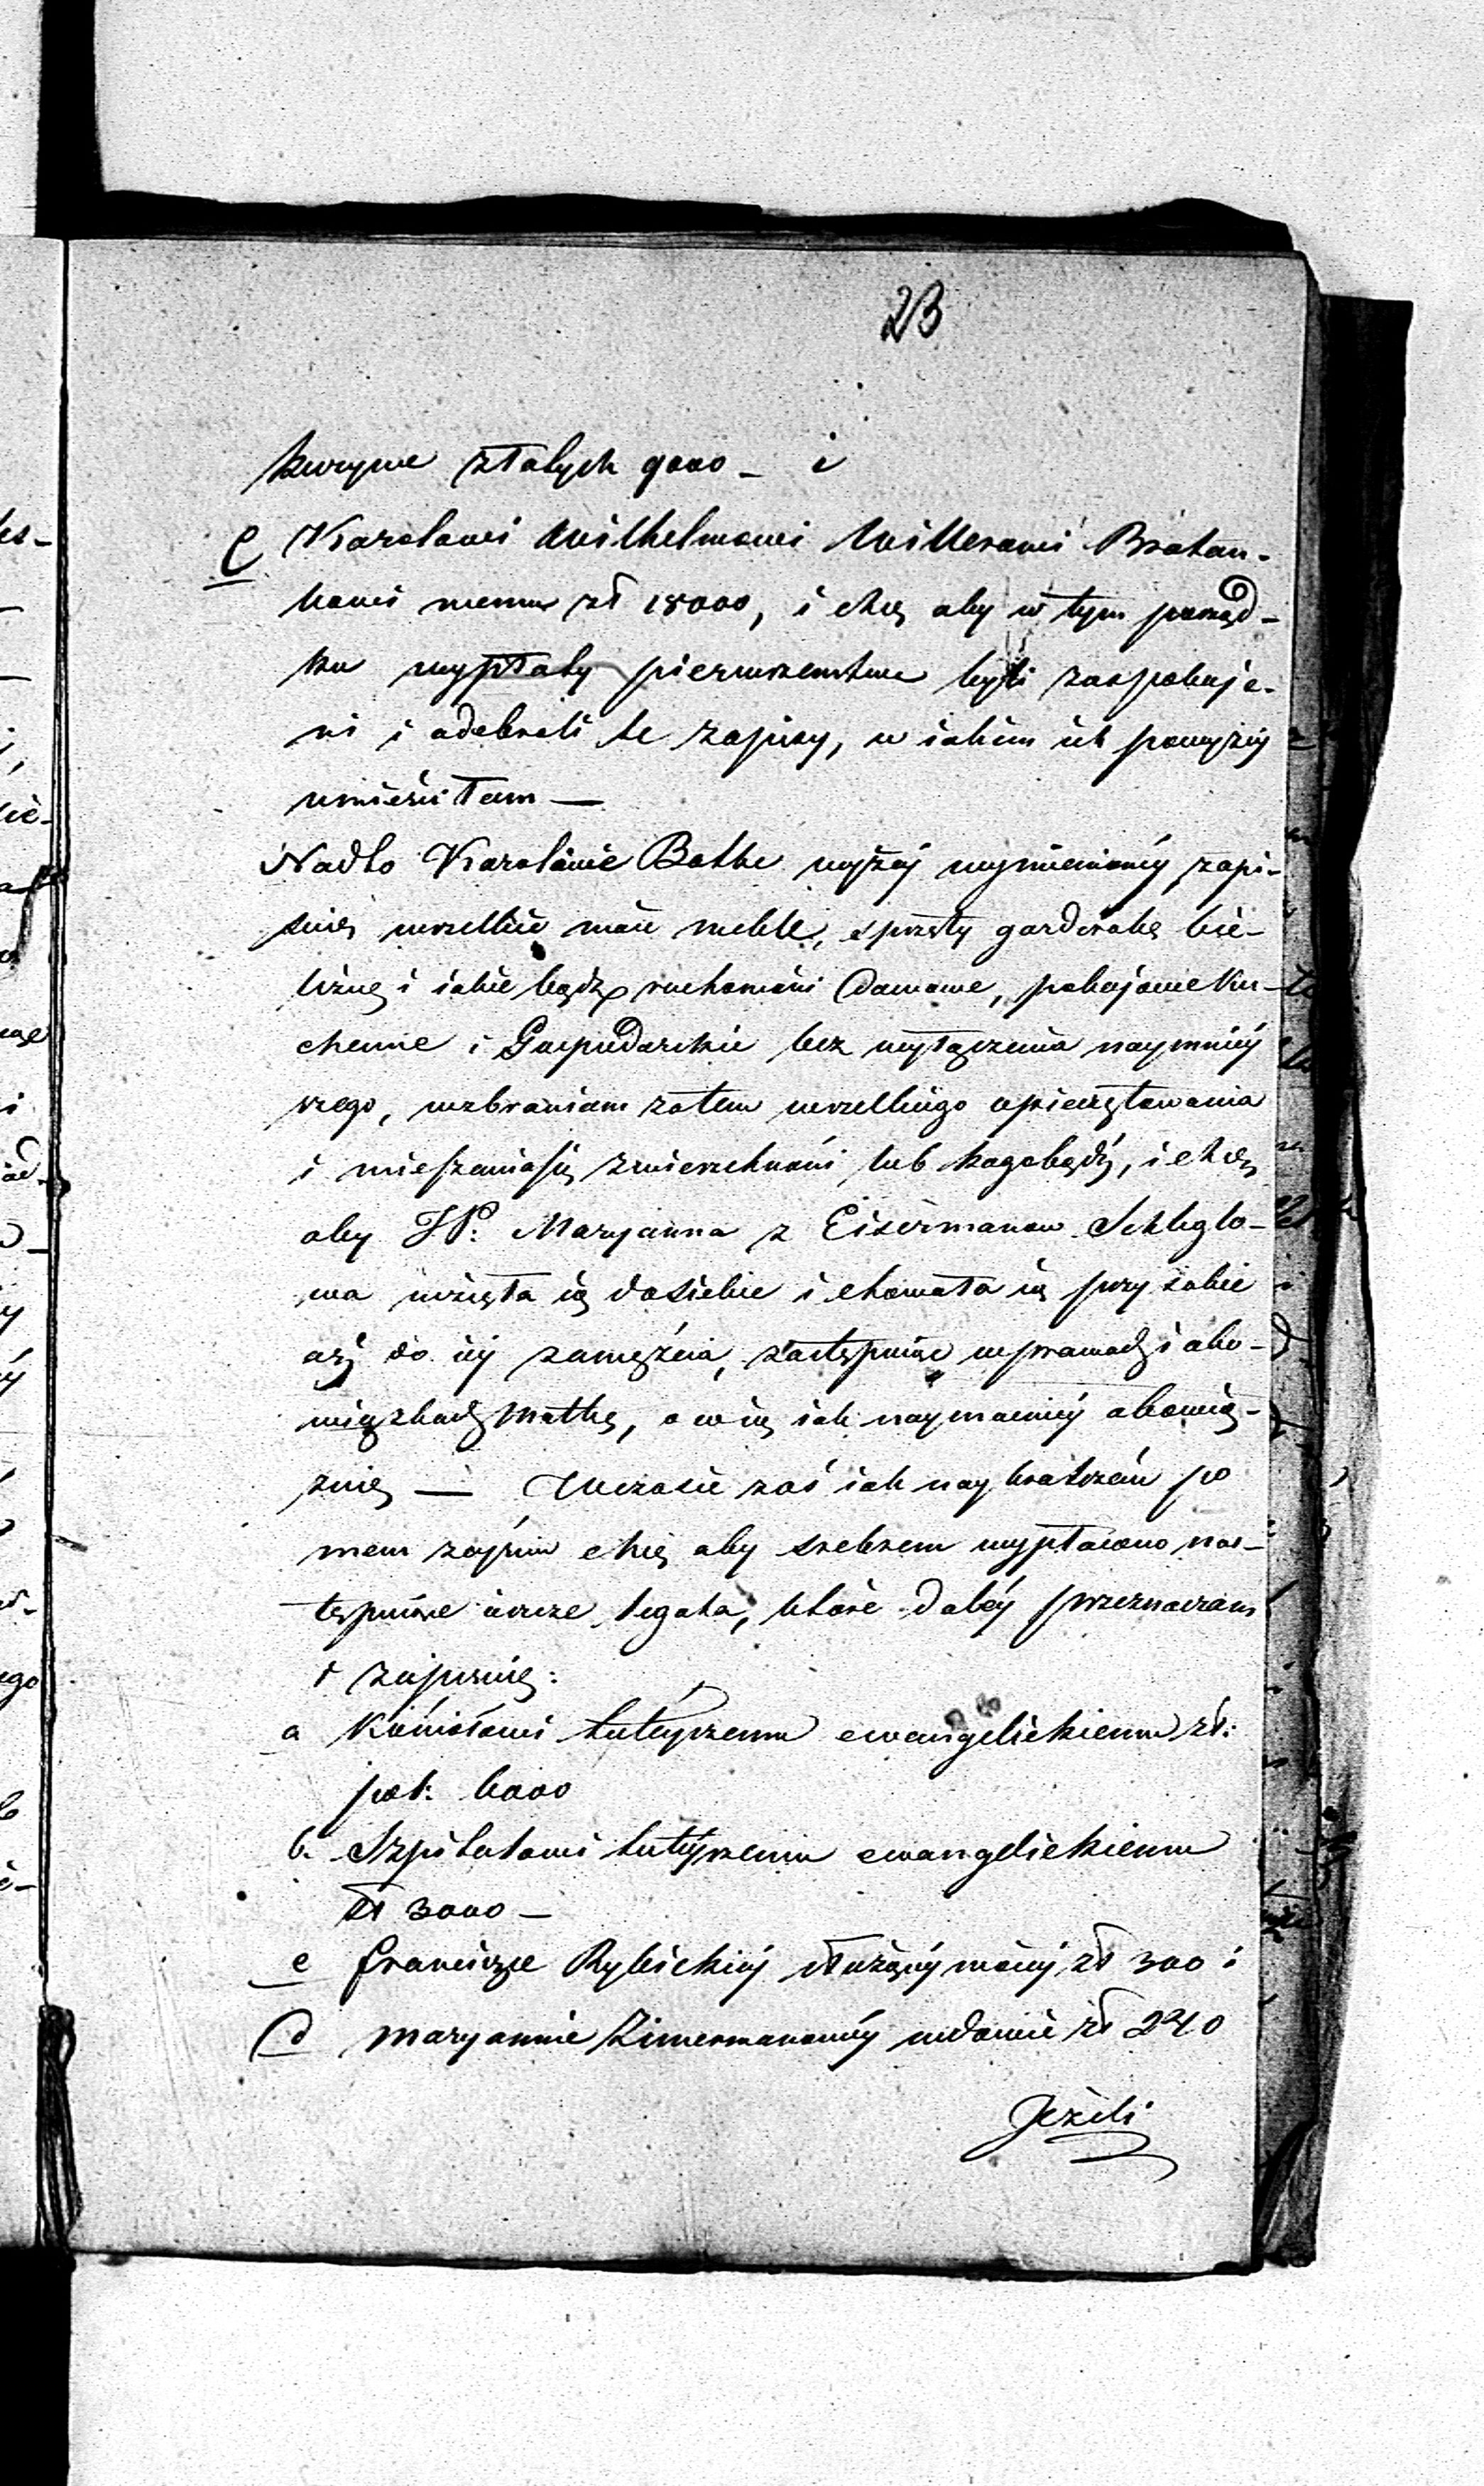 23
złotych 9000 – i
e Karolowi Wilhelmowi Millerowi Bratan-
kowi memu zł 18000, i chcę aby w tym porząd-
ku wypłaty pierwszeństwa byli zaspokoje-
ni i odebrali te zapisy, w iakim ich powyżéy
umieściłam —
Nadto Karolinie Bothe wyżéy wymienionéy zapi-
suię wszelkie moie meble, sprzęty garderobę bie-
liznę i iakie bądź ruchomości Domowe, pokojowe ku-
chenne i Gospodarskie bez wyłączenia naymniéy
szego, wzbraniam zatem wszelkiego opieczętowania
i mieszania się zwierzchności lub kogobądź, i chcę
aby JP: Maryanna z Eisermanow Schleglo-
wa wzięła ią do siebie i chowała ią przy sobie
aż do iéy zamęźcia, zastępuiąc w prawach i obo-
wiązkach Matkę, o co ią iak naymocniéy obowią-
zuię — W czasie zaś iak naykrótszém po
mem zgonie chcę aby srebrem wypłacono nas-
tępuiące ieszcze legata, które daléy przeznaczam
i zapisuię:
a Kościołowi tutéyszemu ewangelickiemu zł:
pol: 6000
b. Szpitalowi tutéyszemu ewangelickiemu
zł 3000 –
c Franciszce Rybickiéy służącéy moiéy zł 300 i
d Maryannie Zimermanowéy wdowie zł 240
Jeżeli